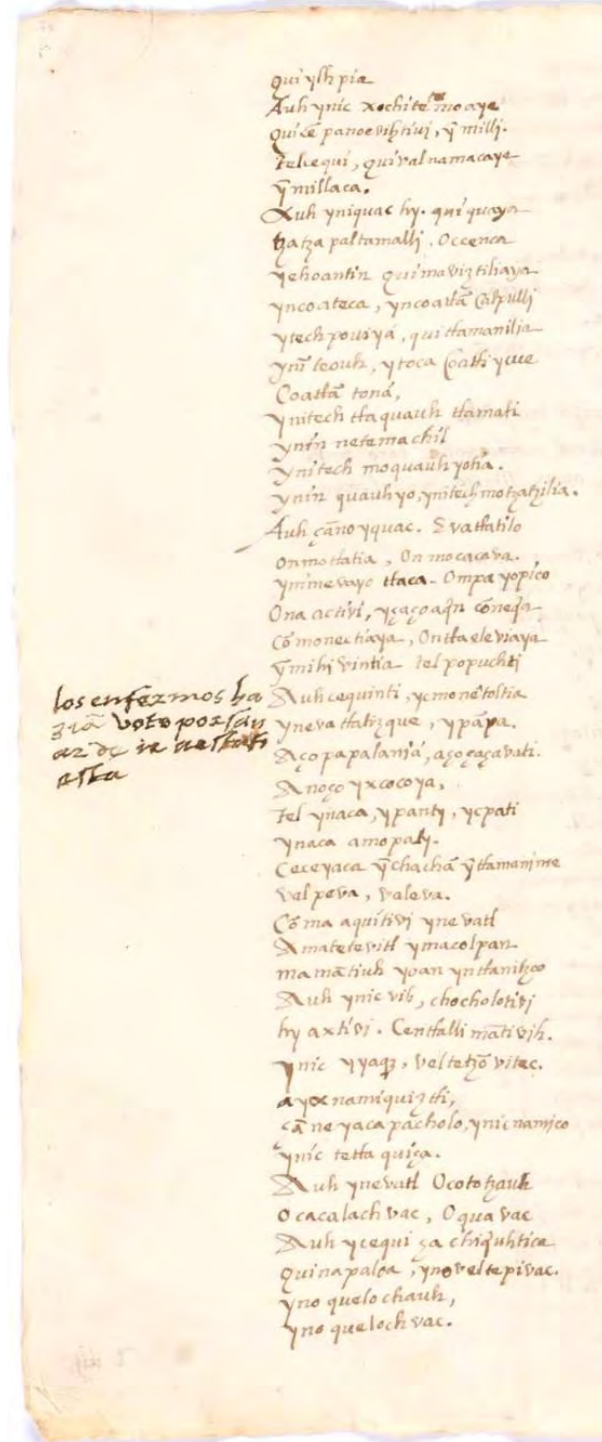 qui ylh pia
Auh ynic xochitemoaya
quicē panoevihtivi, ȳ milli.
Telcequi, quivalnamacaya
ȳ millaca.
Auh yniquac hy. quiquaya
tzatza paltamalli. Occenca
yehoantin quimaviztiliaya
yncoateca, yncoatlā Calpulli
ytech poviyā, quitlamanilia
ynī teouh, ytoca Coatlycue
Coatlā tonā,
ynitech tlaquauh tlamati
ynin netemachil
ynitech moquauhyotia.
ynin quauhyo, ynitech motzatzilia.
Auh çāno yquac. Evatlatilo
onmotlatia, Onmocacava.
ynimevayo tlaca. Ompa yopico
Ona activi, yçaçoaqn cōneqa
Cōmonectiaya, Ontlaeleviaya
ȳ mihivintia tel popuchti
Auh cequinti, ycmonetoltia
ynevatlatizque, ypāpa.
Aço papalaniā, açoçaçavati.
Anoço yxcocoya,
Tel ynaca, ypanty, ycpati
ynaca amo paty.
Ceceyaca ȳ chachā ȳ tlamanime
valpeva, valeva.
Cōma aquitivi ynevatl
Amatetevitl ymacolpan
mamātiuh yoan yntlanitzco
Auh ynic vih, chocholotivi
hy axtivi. Centlalli mātivih.
ynic yyaqz, veltetzō vitec.
ayoc namiquiztli,
çā neyacapacholo, ynic namico
ynic tetla quiça.
Auh ynevatl Ocototzauh
ocacalachvac, Oquavac
Auh ycequi ça chiquhtica
quinapaloa, ynoveltepivac.
yno quelochauh,
yno quelochvac.
los enfermos ha
ziā voto por san
ar de ir a estafi
esta